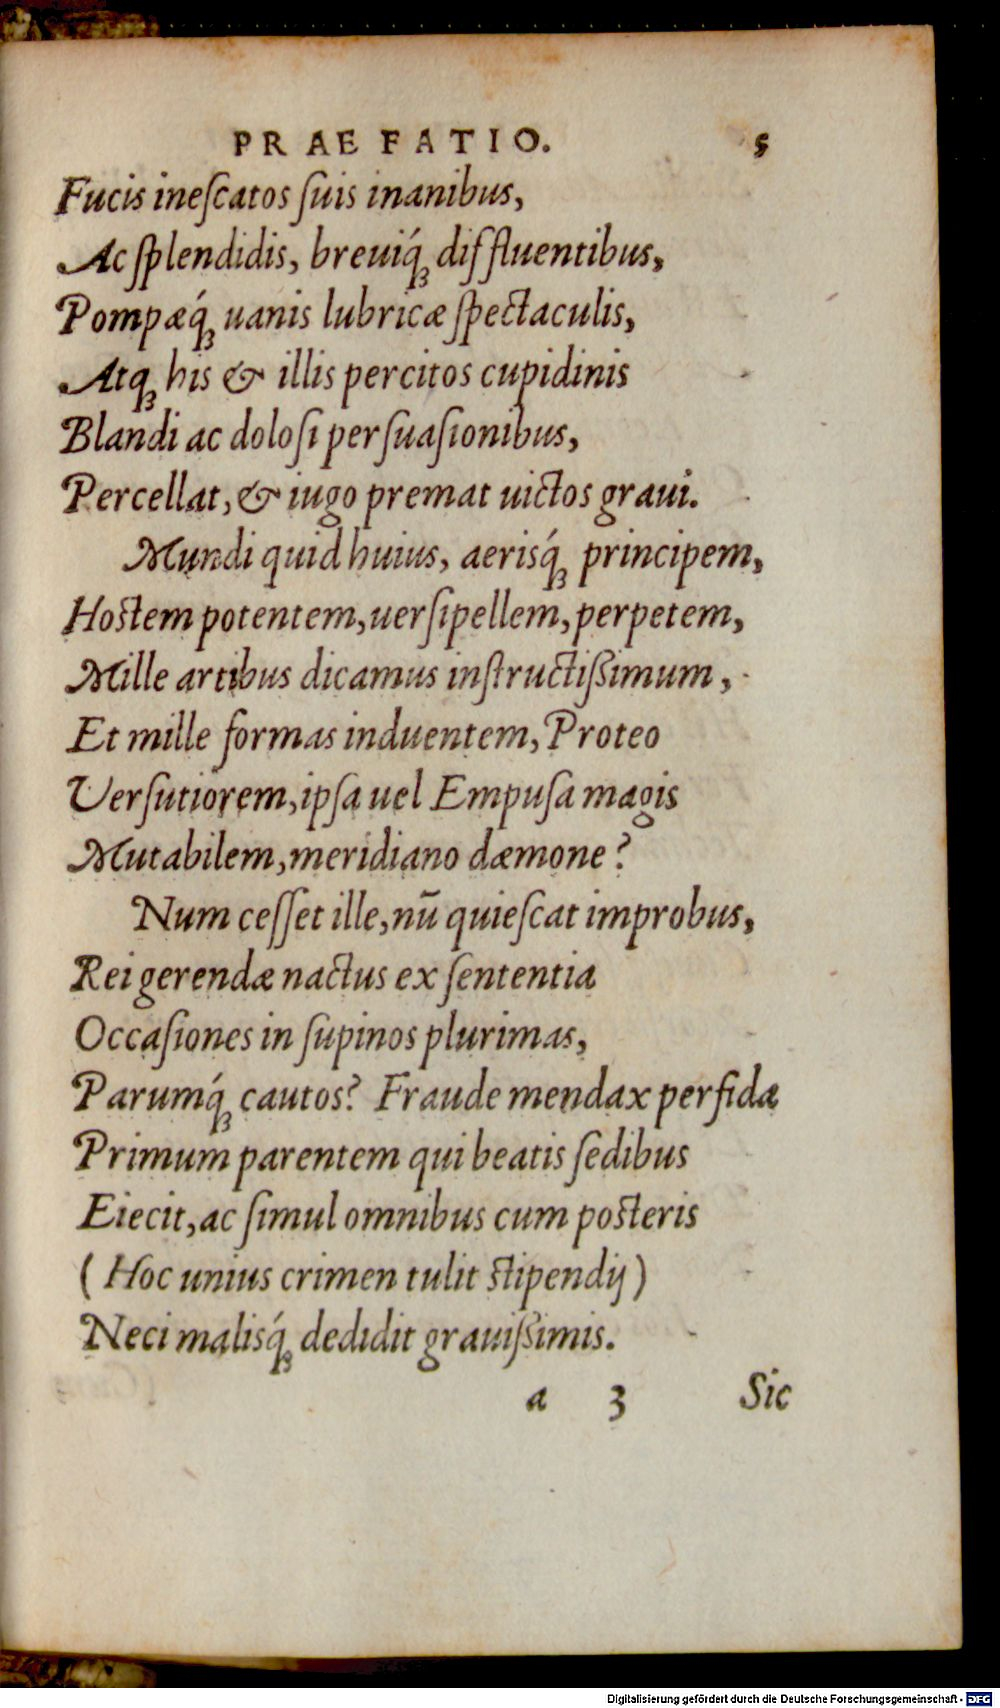 PRAEFATIO. 5
Fucis ineſcatos ſuis inanibus,
Ac ſplendidis, breuiq́; diffluentibus,
Pompæq́; uanis lubricæ ſpectaculis,
Atq; his & illis percitos cupidinis
Blandi ac doloſi perſuaſionibus,
Percellat, & iugo premat uictos graui.
Mundi quid huius, aerisq́; principem,
Hostem potentem, uerſipellem, perpetem,
Mille artibus dicamus inſtructißimum,
Et mille formas induentem, Proteo
Verſutiorem, ipſa uel Empuſa magis
Mutabilem, meridiano dæmone?
Num ceſſet ille, nū quieſcat improbus,
Rei gerendæ nactus ex ſententia
Occaſiones in ſupinos plurimas,
Parumq́; cautos? Fraude mendax perfida
Primum parentem qui beatis ſedibus
Eiecit, ac ſimul omnibus cum posteris
(Hoc unius crimen tulit stipendij)
Neci malisq́; dedidit grauißimis.
a 3 Sic
Digitalisierung gefördert durch die Deutsche Forschungsgemeinschaft - DFG